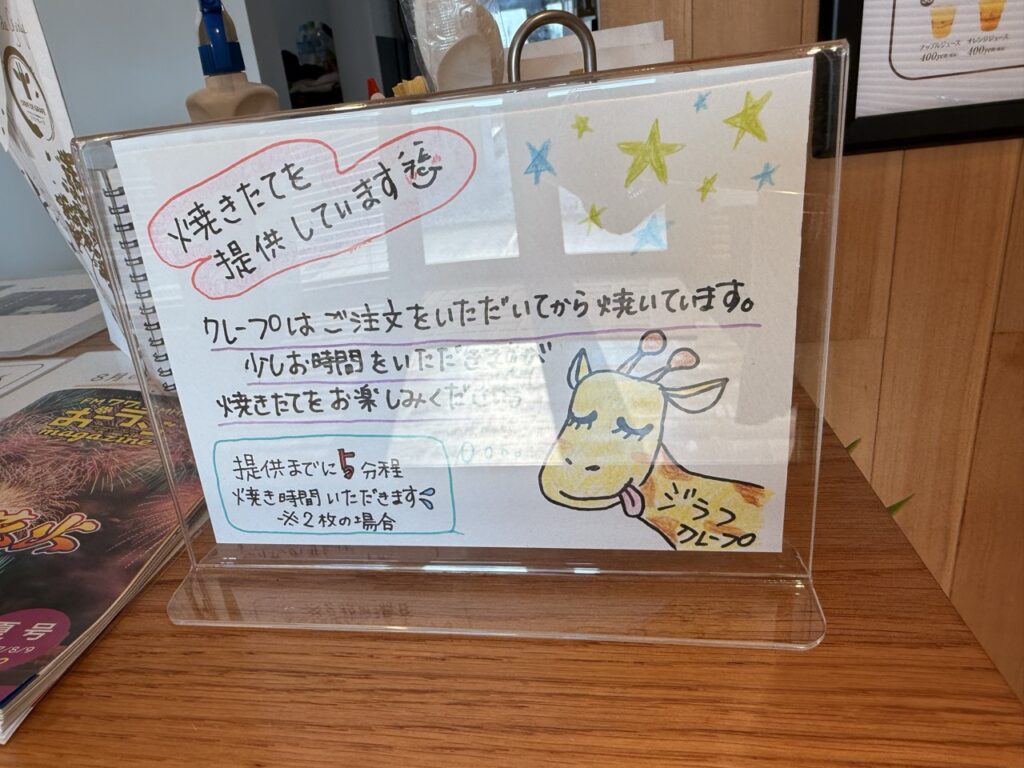 焼きたてを
提供しています
クレープはご注文をいただいてから焼いています。
少しお時間をいただきますが
焼きたてをお楽しみください。
提供までに5分程
焼き時間いただきます
※2枚の場合
ジラフ
クレープ
アップルジュース
400yen
オレンジジュース
400yen
magazine
夏号
7/8/9